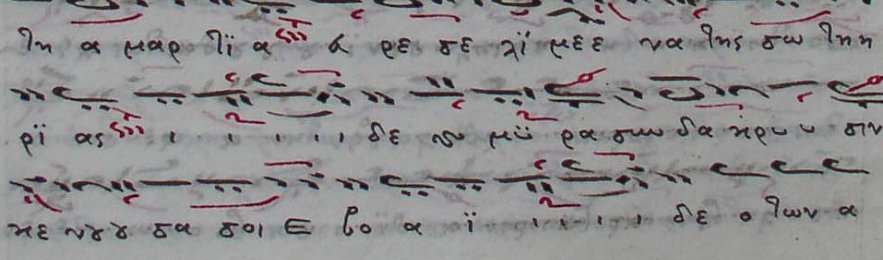 τη α μαρ τϊ α α ρε σε λϊ με ε να της σω τη η
ρϊ ας ι ι ι ι ι δε νυ μϋ ρα σω δα κρυ υ σιν
κε νου ου σα σοι Ε βο α ϊ ι ι ι ι δε ο των α